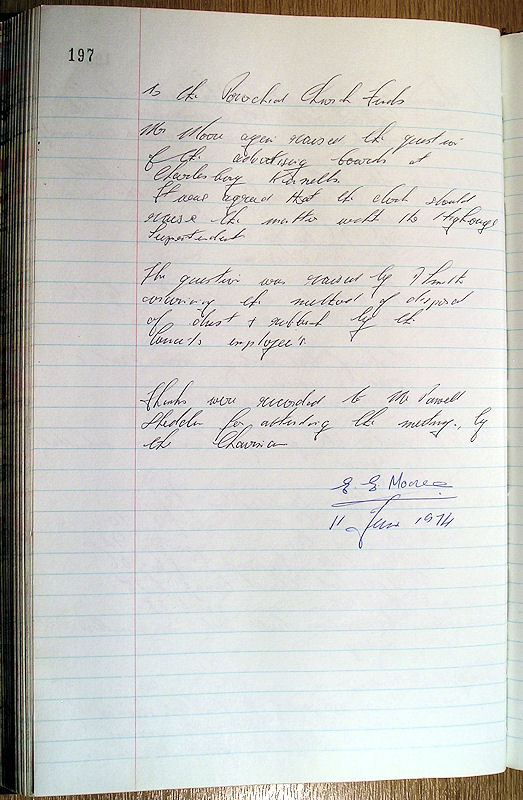 197
to the Parochial Church Funds
Mr Moore again raised the question
of the advertising boards at
Charlesbury Kennells.
It was agreed that the clerk should
raise the matter with the Highways
The question was raised by
the method of disposal
of dust + rubbish by the
Councils employee's
Thanks were recorded to Mr Powell
for attending the meeting, by
the Chairman
E. E. Moore
11 June 1974